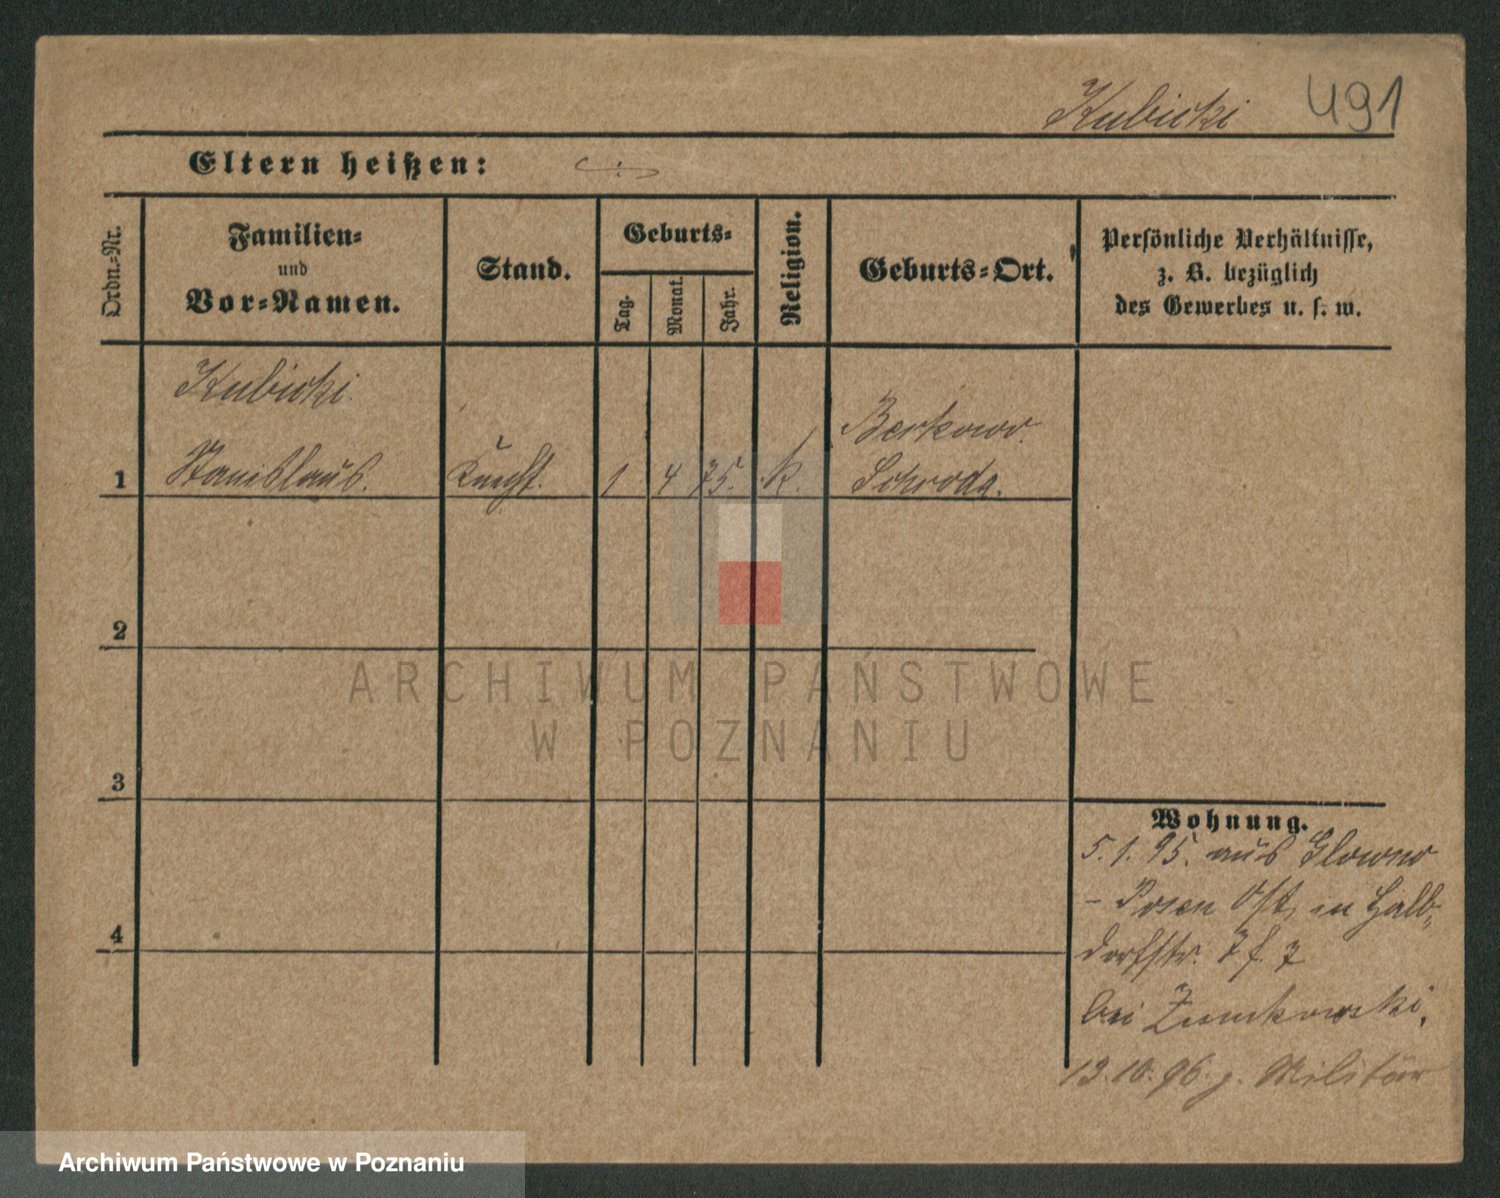 Kubicki 491
Eltern heißen: ./.
Ordn.-Nr.
Familien-
und
Vor-Namen.
Stand.
Geburts-
Tag.
Monat.
Jahr.
Religion.
Geburts-Ort.
Persönliche Verhältnisse,
z. B. bezüglich
des Gewerbes u. s. w.
Kubicki
Stanislaus.
1
Knecht.
1
4
75.
k.
Berkowo.
Schroda.
2
ARCHIWUM PAŃSTWOWE
W POZNANIU
3
4
Wohnung.
5.1.95. aus Glowno
- Posen Ost, in Halb-
dorfstr.
bei
13.10.96. z. Militär
Archiwum Państwowe w Poznaniu